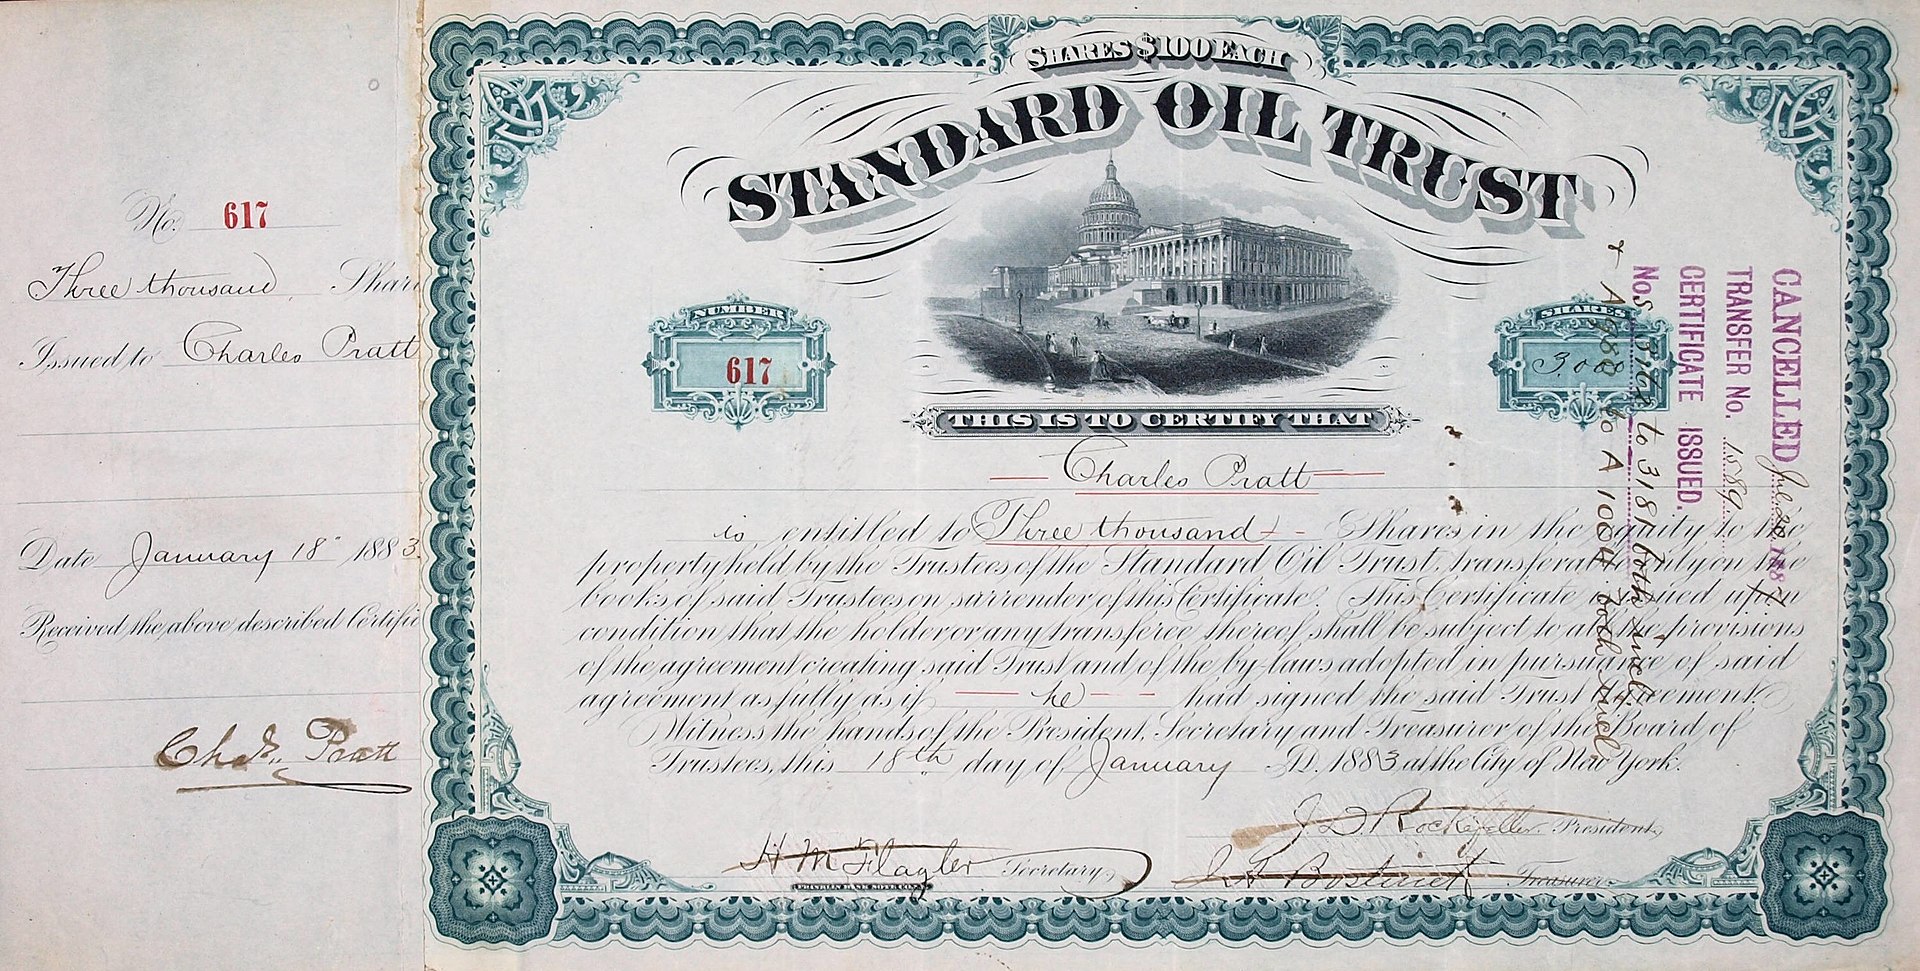 No. 617
Three thousand Shar
Issued to Charles Pratt
Date January 18" 1883.
Received the above described Certific
Chas. Pratt
SHARES $100 EACH
STANDARD OIL TRUST
NUMBER
617
SHARES
3.000
THIS IS TO CERTIFY THAT
Charles Pratt
is entitled to Three thousand Shares in the equity to the
property held by the Trustees of the Standard Oil Trust, transferable only on the
books of said Trustees on surrender of this Certificate. This Certificate is issued upon
condition that the holder or any transferee thereof shall be subject to all the provisions
of the agreement creating said Trust and of the by-laws adopted in pursuance of said
agreement as fully as if he had signed the said Trust Agreement.
Witness the hands of the President, Secretary and Treasurer of the Board of
Trustees, this 18th day of January A.D. 1883 at the City of New York.
J D Rockefeller President
H M Flagler Secretary
Treasurer
FRANKLIN BANK NOTE CO.
CANCELLED
TRANSFER No. 1889
CERTIFICATE ISSUED.
Nos to 3181 both incl
to A 1004 both incl